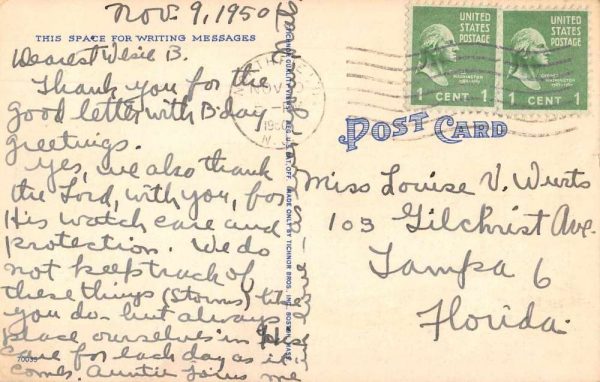 Nov. 9, 1950
THIS SPACE FOR WRITING MESSAGES
Dearest B.
Thank you for the
good letter with B'day
greetings.
Yes, we also thank
the Lord, with you, for
His watch care and
protection. We do
not keep track of
these things (Storms) like
you do - but always
place ourselves in His
care for each day as it
comes. Auntie joins me
in love
TICHNOR QUALITY VIEWS REG. U.S. PAT. OFF. MADE ONLY BY TICHNOR BROS., INC., BOSTON, MASS.
70035
UNITED
STATES
POSTAGE
WASHINGTON
1 CENT 1
UNITED
STATES
POSTAGE
GEORGE
WASHINGTON
1 CENT 1
NOV
POST CARD
Miss Louise V. Wurts
103 Gilchrist Ave.
Tampa 6
Florida.